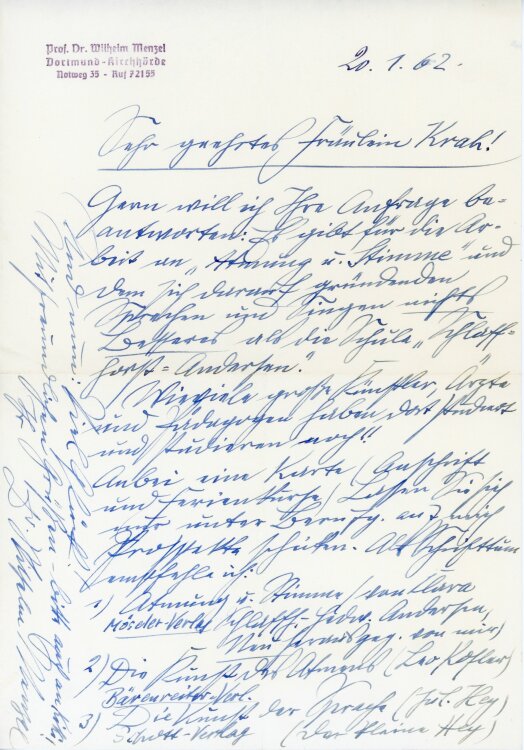 Prof. Dr. Wilhelm Menzel
Dortmund-Kirchhörde
Notweg 35 - Ruf 72155
20. 1. 62.
Sehr geehrtes Fräulein Krah!
Gern will ich Ihre Anfrage be-
antworten: Es gibt für die Ar-
beit an „Atmung u. Stimme" und
dem sich darauf gründenden
Sprechen und Singen nichts
Besseres als die Schule „Schlaff-
horst-Andersen."
(Wieviele große Künstler, Ärzte
und Pädagogen haben dort studiert
und studieren noch!!
Anbei eine Karte (Anschrift
und Ferienkurse) Lassen Sie sich
nur unter Berufg. auf mich
Prospekte schicken. Als Schrifttum
empfehle ich:
1) Atmung u. Stimme (von Klara
Möseler-Verlag Schlaffh.-Hedw. Andersen,
Neu herausgeg. von mir)
2) Die Kunst des Atmens (Leo Kofler)
Bärenreiter-Verl.
3) Die Kunst der Sprache (Jul. Hey)
Schott-Verlag (Der kleine Hey)
Und nun: viel Glück!
Mit freundlichen Grüßen
Ihr
Dr. Wilhelm Menzel